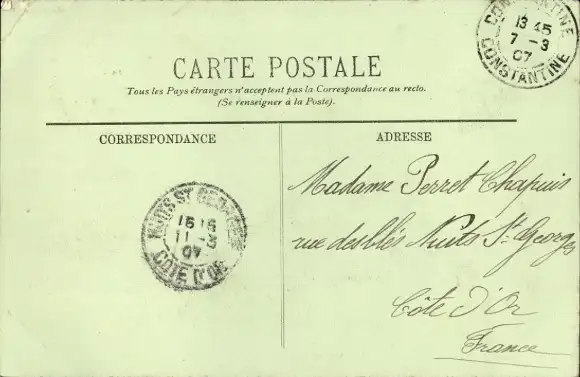 CONSTANTINE
13 45
7 -3
07
CONSTANTINE
CARTE POSTALE
Tous les Pays étrangers n'acceptent pas la Correspondance au recto.
(Se renseigner à la Poste).
CORRESPONDANCE
ADRESSE
Madame Perret Chapuis
rue des Blés Nuits St. Georges
Côte d'Or
France
NUITS ST GEORGES
11 -3
07
COTE D'OR